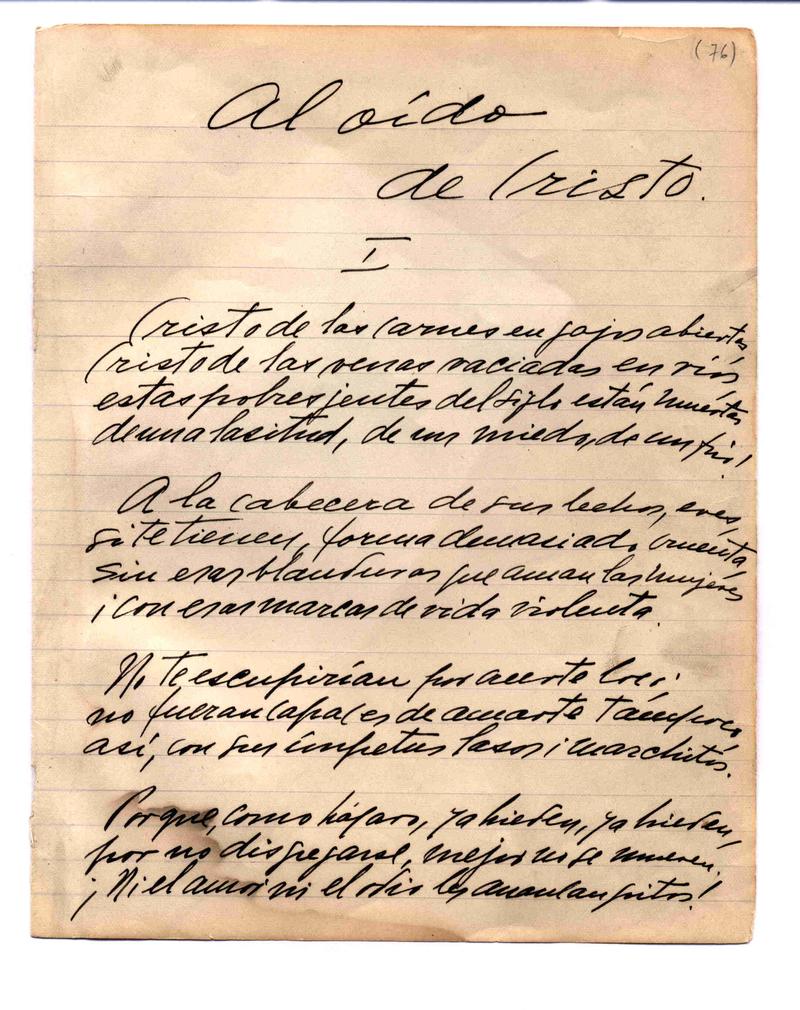 (76)
Al oído
de Cristo.
I
Cristo de las carnes en gajos abiertas
Cristo de las venas vaciadas en ríos,
estas pobres jentes del siglo están muertas
de una lasitud, de un miedo, de un frío!
A la cabecera de sus lechos, eres,
si te tienen, forma demasiado cruenta,
sin esas blanduras que aman las mujeres
i con esas marcas de vida violenta.
No te escupirían por creerte loco;
no fueran capaces de amarte tampoco
así, con sus ímpetus lasos i marchitos.
Porque, como Lázaro, ya hieden, ya hieden,
por no disgregarse, mejor no se mueven.
¡Ni el amor ni el odio les arrancan gritos!